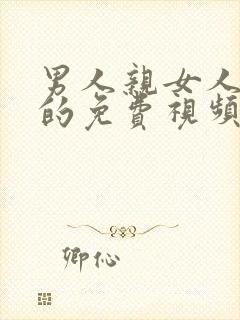 男人親女人
的免費視頻
卿伈